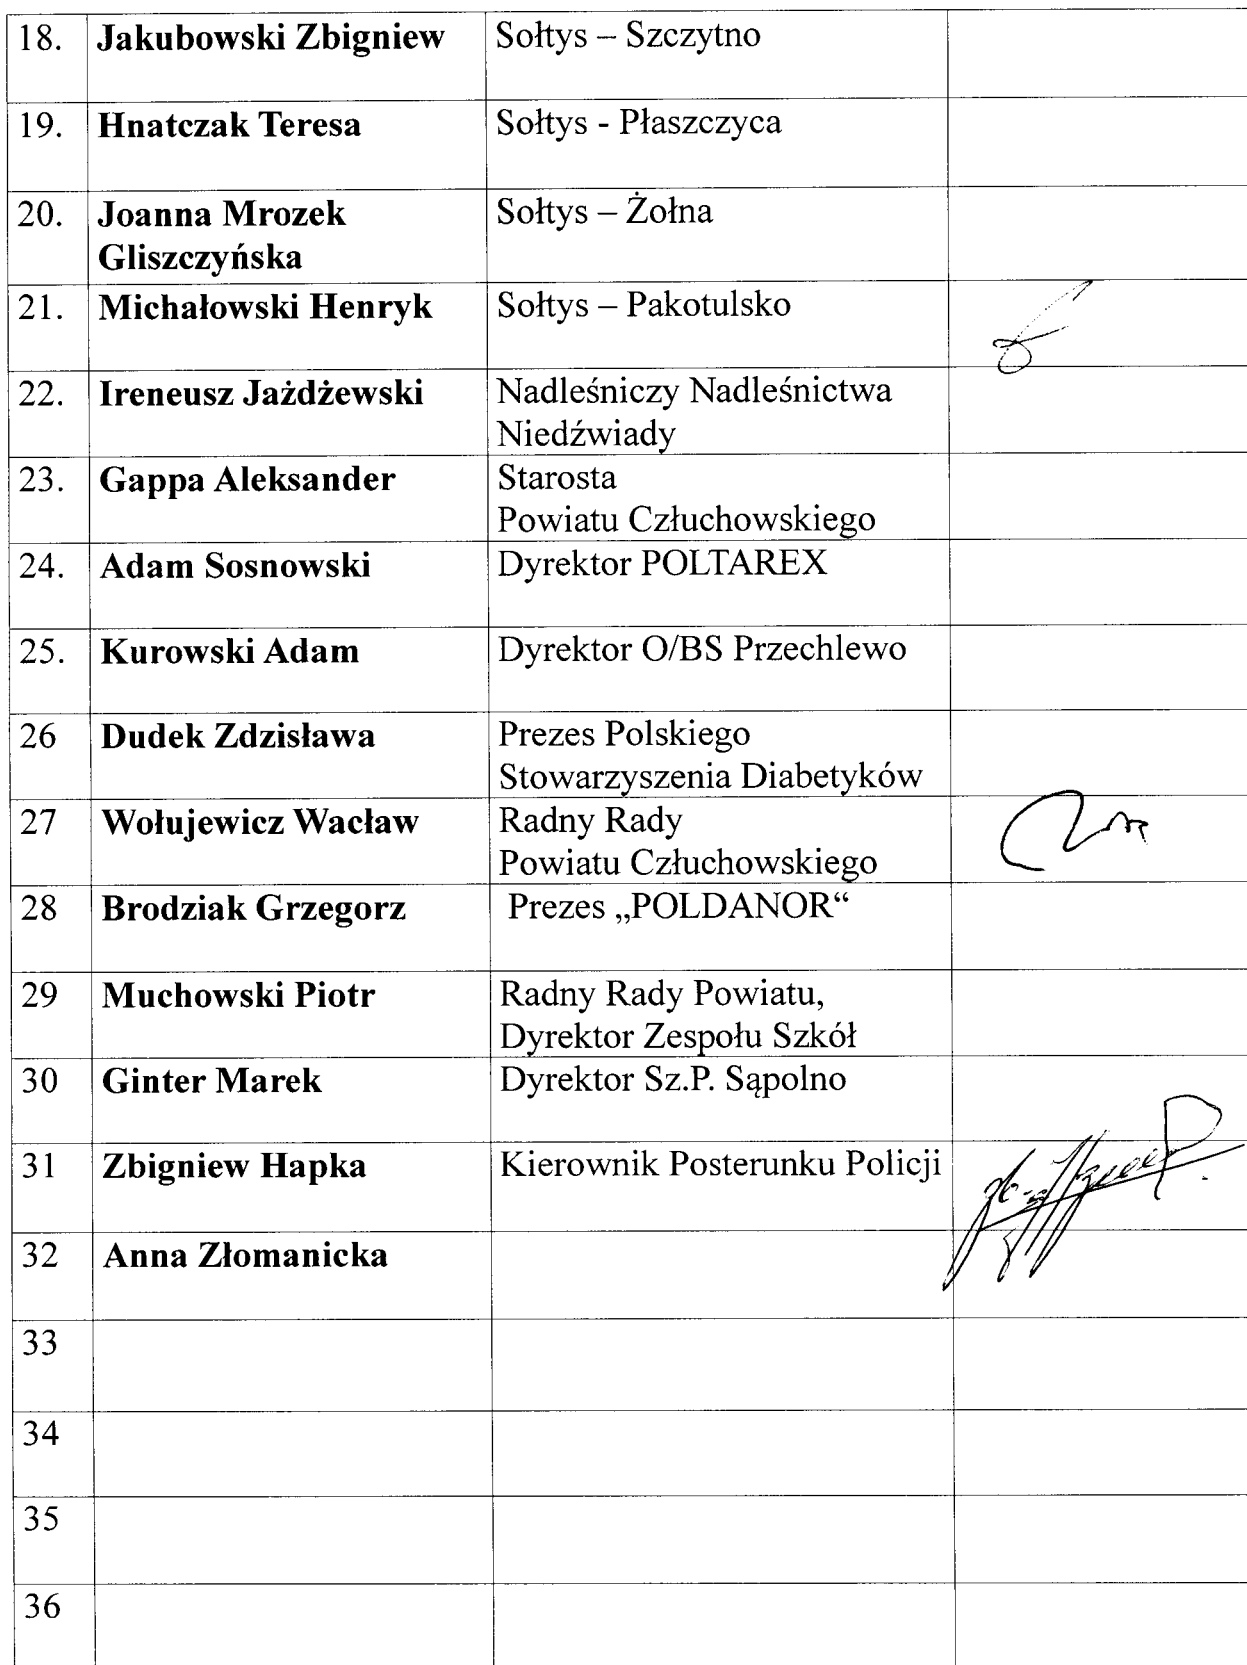 18. Jakubowski Zbigniew Sołtys – Szczytno
19. Hnatczak Teresa Sołtys - Płaszczyca
20. Joanna Mrozek Sołtys – Żołna
Gliszczyńska
21. Michałowski Henryk Sołtys – Pakotulsko
22. Ireneusz Jażdżewski Nadleśniczy Nadleśnictwa
Niedźwiady
23. Gappa Aleksander Starosta
Powiatu Człuchowskiego
24. Adam Sosnowski Dyrektor POLTAREX
25. Kurowski Adam Dyrektor O/BS Przechlewo
26 Dudek Zdzisława Prezes Polskiego
Stowarzyszenia Diabetyków
27 Wołujewicz Wacław Radny Rady
Powiatu Człuchowskiego
28 Brodziak Grzegorz Prezes „POLDANOR“
29 Muchowski Piotr Radny Rady Powiatu,
Dyrektor Zespołu Szkół
30 Ginter Marek Dyrektor Sz.P. Sąpolno
31 Zbigniew Hapka Kierownik Posterunku Policji
32 Anna Złomanicka
33
34
35
36